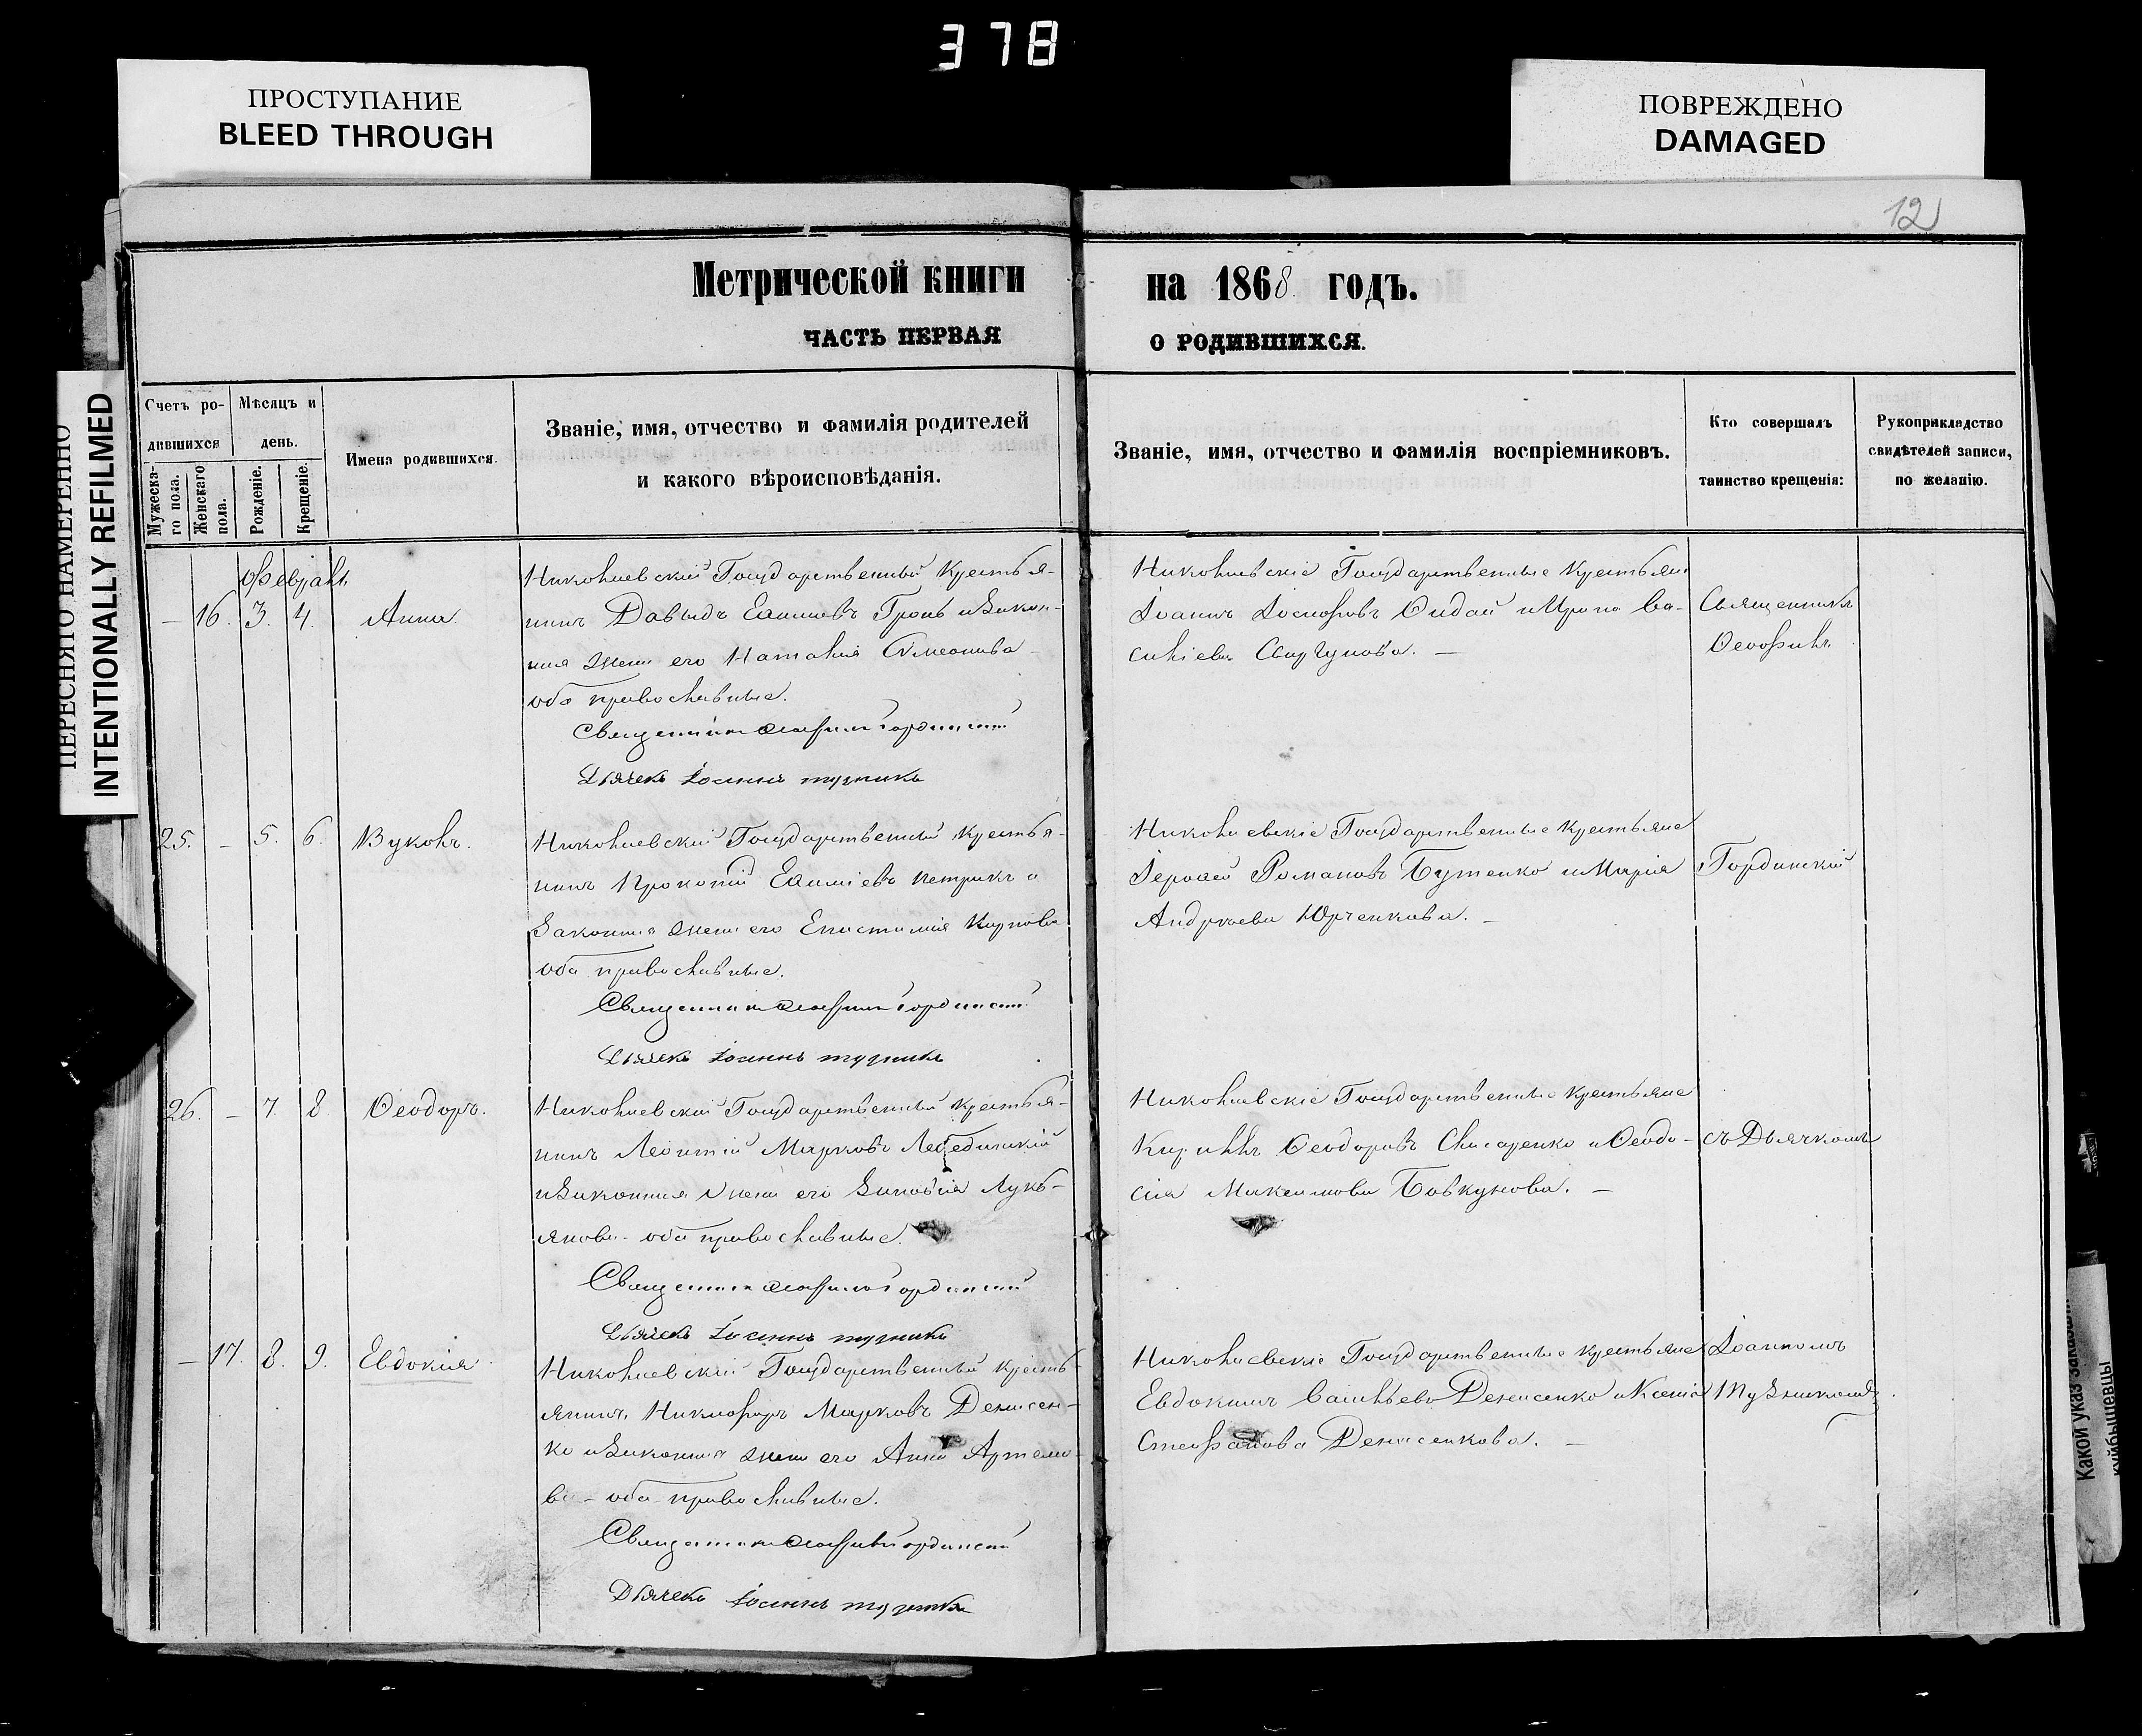 378
ПРОСТУПАНИЕ
BLEED THROUGH
ПОВРЕЖДЕНО
DAMAGED
ПЕРЕСНЯТО НАМЕРЕННО
INTENTIONALLY REFILMED
12
Метрической книги на 1868 годъ.
ЧАСТЬ ПЕРВАЯ О РОДИВШИХСЯ.
Счетъ родившихся
Мужескаго пола.
Женскаго пола.
Мѣсяцъ и день.
Рожденіе.
Крещеніе.
Имена родившихся.
Званіе, имя, отчество и фамилія родителей
и какого вѣроисповѣданія.
Званіе, имя, отчество и фамилія воспріемниковъ.
Кто совершалъ
таинство крещенія:
Рукоприкладство
свидѣтелей записи,
по желанію.
Февраль
– 16. 3. 4. Анна.
Николаевскій Государственный Крестья-
нинъ Давыдъ Гронь и Закон-
ная жена его Наталія Симеонова
оба православные.
Священникъ Ѳеофилъ Гординскій
Дьячекъ Іоаннъ Тузникъ
Николаевскіе Государственные Крестьяне
Іоаннъ Іосифовъ и Ирина Ва-
силіева
Священникъ
Ѳеофилъ
25. – 5. 6. Вуколъ.
Николаевскій Государственный Крестья-
нинъ Прокопій Петрикъ и
Законная жена его Епистимія Карпова
оба православные.
Священникъ Ѳеофилъ Гординскій
Дьячекъ Іоаннъ Тузникъ
Николаевскіе Государственные Крестьяне
Іероѳей Романовъ Бутенко и Марія
Андреева Юрченкова. –
Гординскій
26. – 7. 8 Ѳеодоръ.
Николаевскій Государственный Крестья-
нинъ Леонтій Марковъ Лебединскій
и Законная жена его Зиновія Лукь-
янова оба православные.
Священникъ Ѳеофилъ Гординскій
Дьячекъ Іоаннъ Тузникъ
Николаевскіе Государственные Крестьяне
Кириллъ Ѳеодоровъ Слисаренко и Ѳеодо-
сія Максимова Бовкунова. –
съ Дьячкомъ
– 17. 8. 9. Евдокія.
Николаевскій Государственный Кресть-
янинъ Никифоръ Марковъ Денисен-
ко и Законная жена его Анна Артемо-
ва – оба православные.
Священникъ Ѳеофилъ Гординскій
Дьячекъ Іоаннъ Тузникъ
Николаевскіе Государственные Крестьяне
Евдокимъ Савельевъ Денисенко и Ксенія
Стефанова Денисенкова. –
Іоанномъ
Тузникомъ.
Какой указ
куйбышевцы